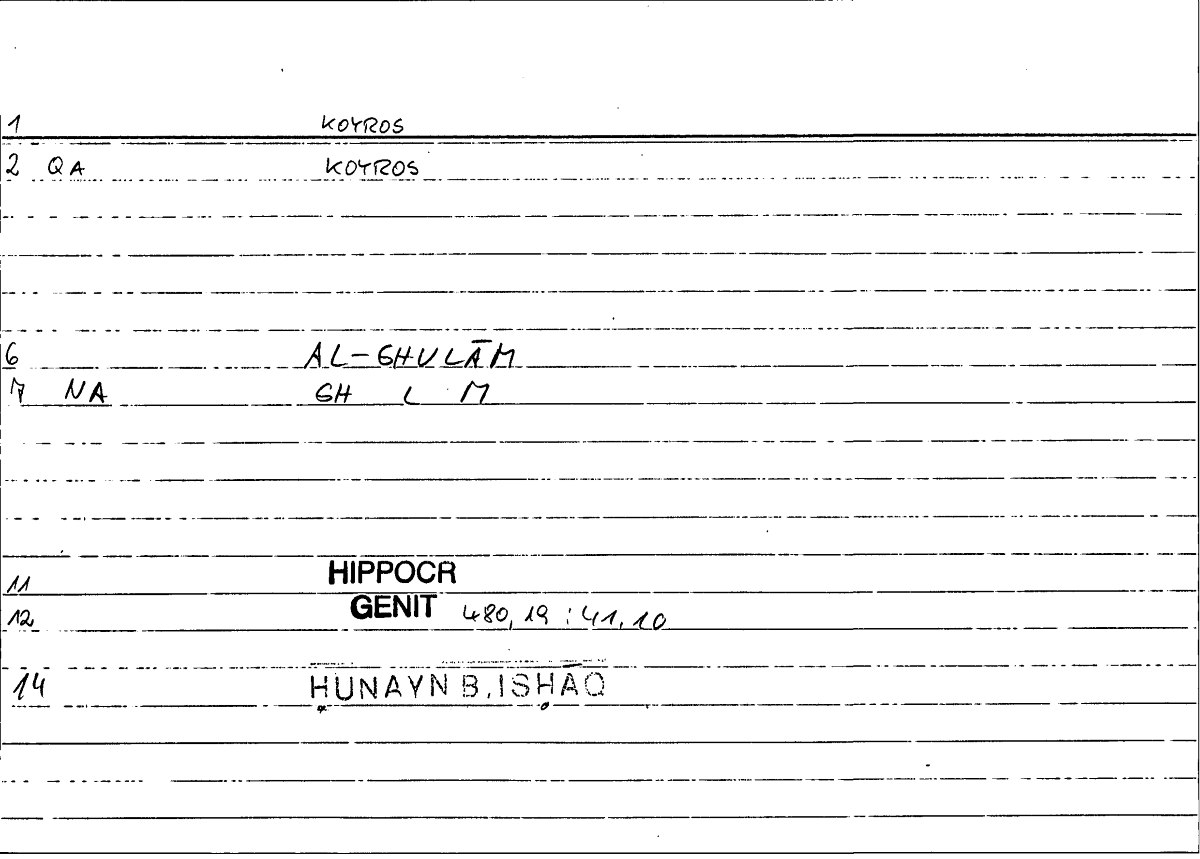 1 KOYROS
2 QA KOYROS
6 AL-GHULĀM
7 NA GH L M
11 HIPPOCR
12 GENIT 480,19 : 41,10
14 ḤUNAYN B. ISḤĀQ